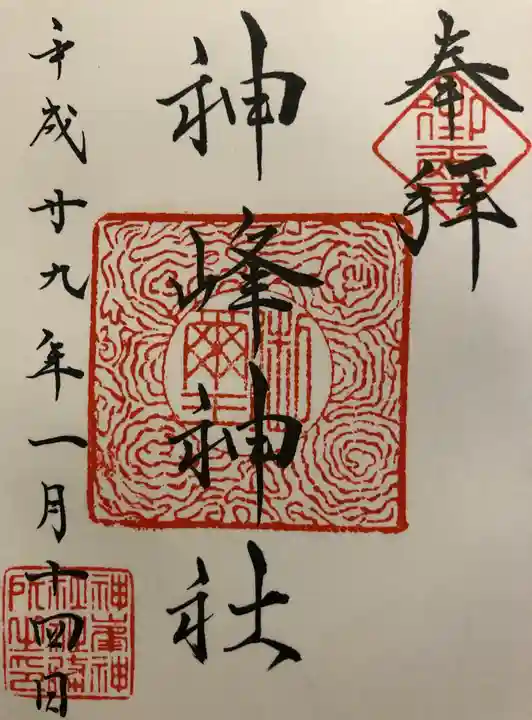 奉拝
神峰神社
平成廿九年一月十四日